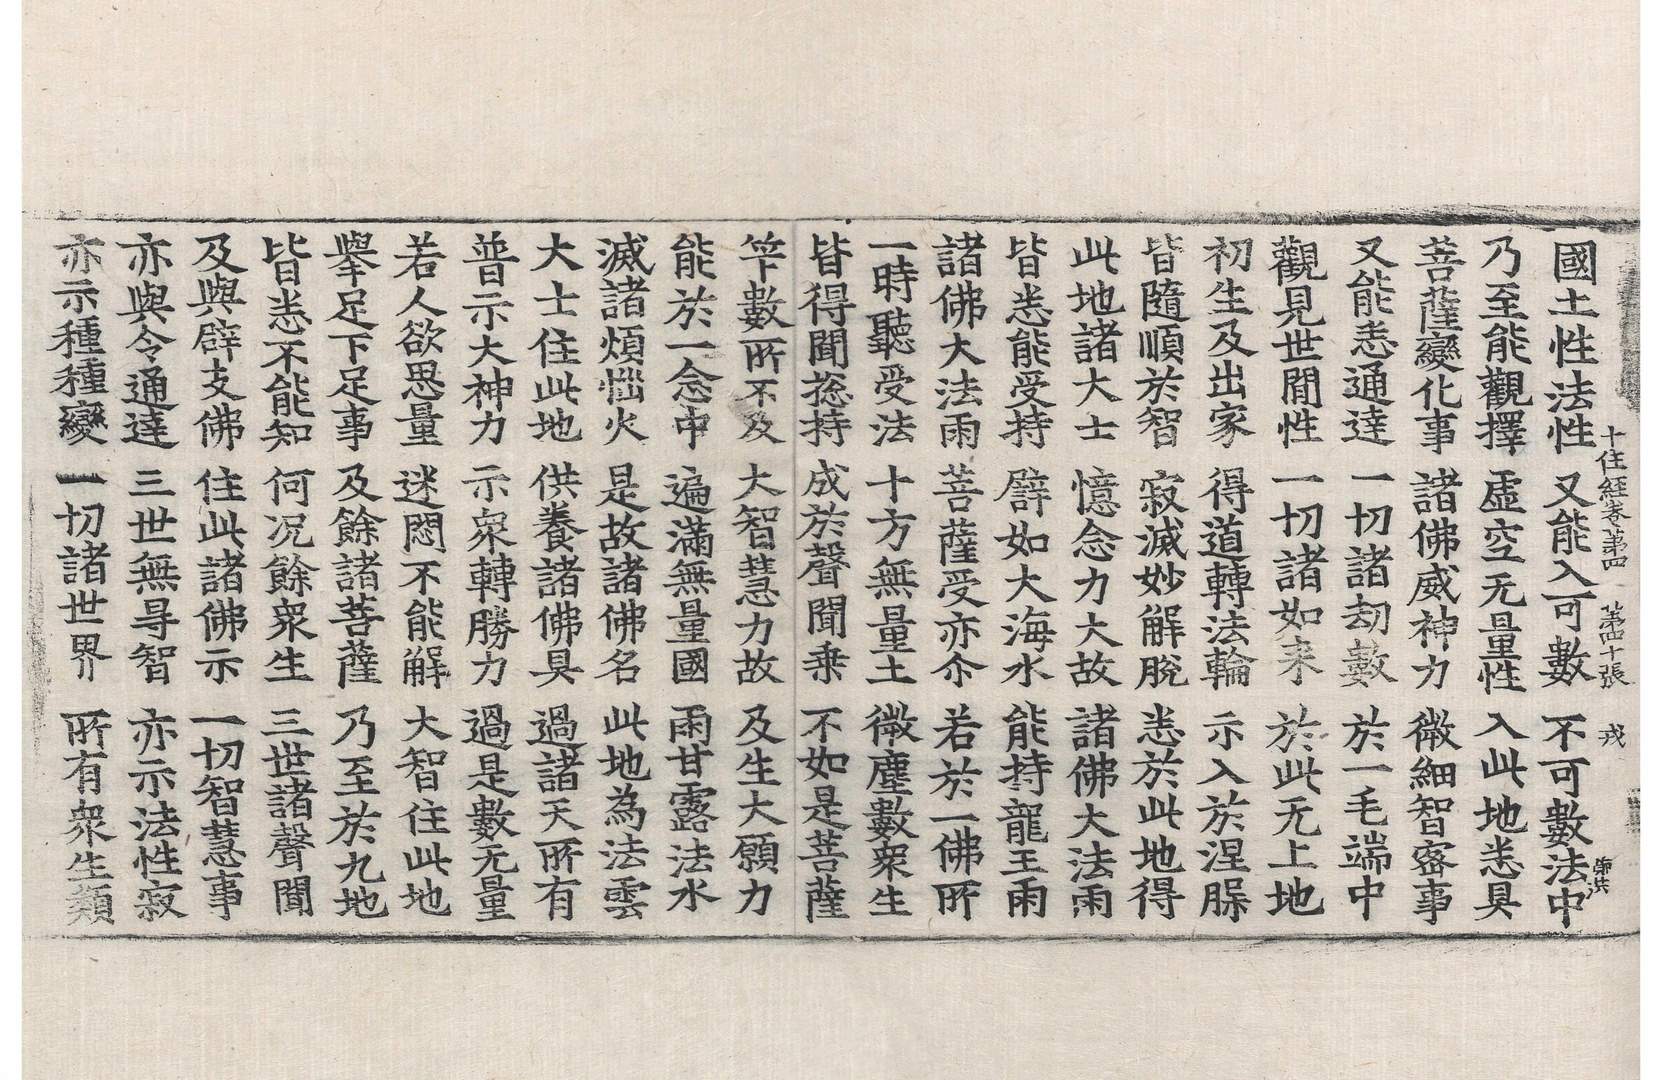 十住經卷第四 第四十張 戎
國土性法性 又能入可數 不可數法中
乃至能觀擇 虛空无量性 入此地悉具
菩薩變化事 諸佛威神力 微細智密事
又能悉通達 一切諸劫數 於一毛端中
觀見世閒性 一切諸如来 於此无上地
初生及出家 得道轉法輪 示入於涅槃
皆隨順於智 寂滅妙解脫 悉於此地得
此地諸大士 憶念力大故 諸佛大法雨
皆悉能受持 譬如大海水 能持龍王雨
諸佛大法雨 菩薩受亦尒 若於一佛所
一時聽受法 十方無量土 微塵數衆生
皆得聞揔持 成於聲聞乗 不如是菩薩
筭數所不及 大智慧力故 及生大願力
能於一念中 遍滿無量國 雨甘露法水
滅諸煩惱火 是故諸佛名 此地為法雲
大士住此地 供養諸佛具 過諸天所有
普示大神力 示衆轉勝力 過是數无量
若人欲思量 迷悶不能解 大智住此地
舉足下足事 及餘諸菩薩 乃至於九地
皆悉不能知 何况餘衆生 三世諸聲聞
及與辟支佛 住此諸佛示 一切智慧事
亦與令通達 三世無㝵智 亦示法性寂
亦示種種變 一切諸世界 所有衆生類